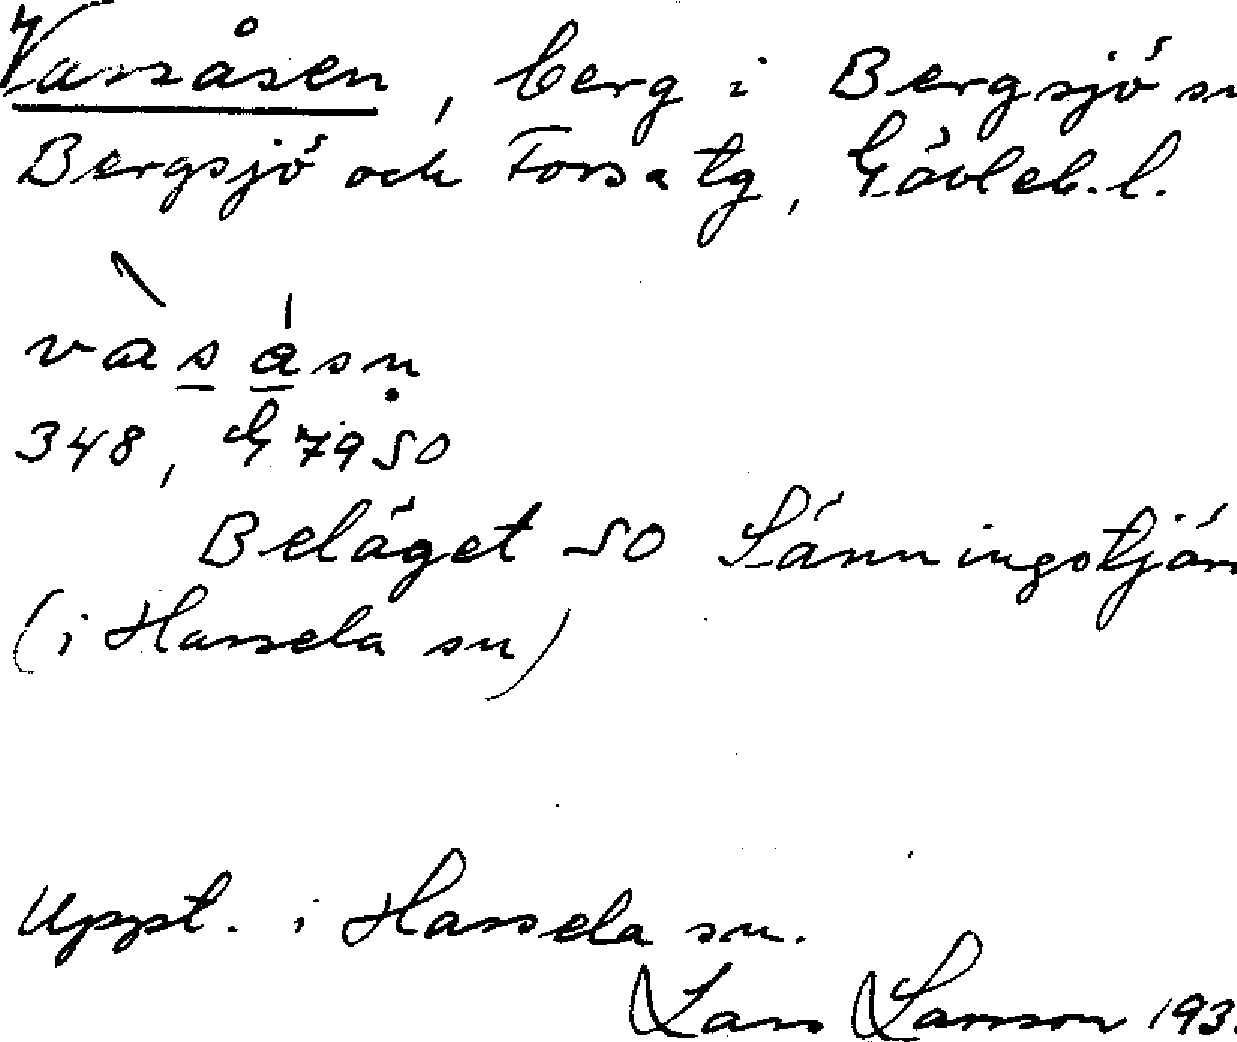 Vassåsen, berg i Bergsjö sn
Bergsjö och Forsa tg, Gävleb. l.
vàsásṇ
348, G 7950
Beläget SO Sänningstjärn
(i Hassela sn)
Uppt. i Hassela sn.
Lars Larsson 193.